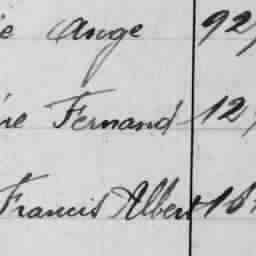 e Ange 92
re Fernand 12
Francis Albert 18